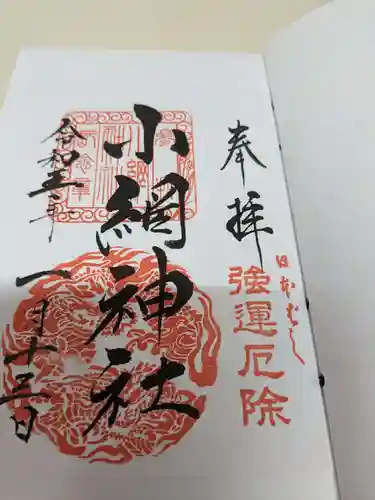 奉拝
日本ばし
強運厄除
小網神社
令和五年
一月十三日